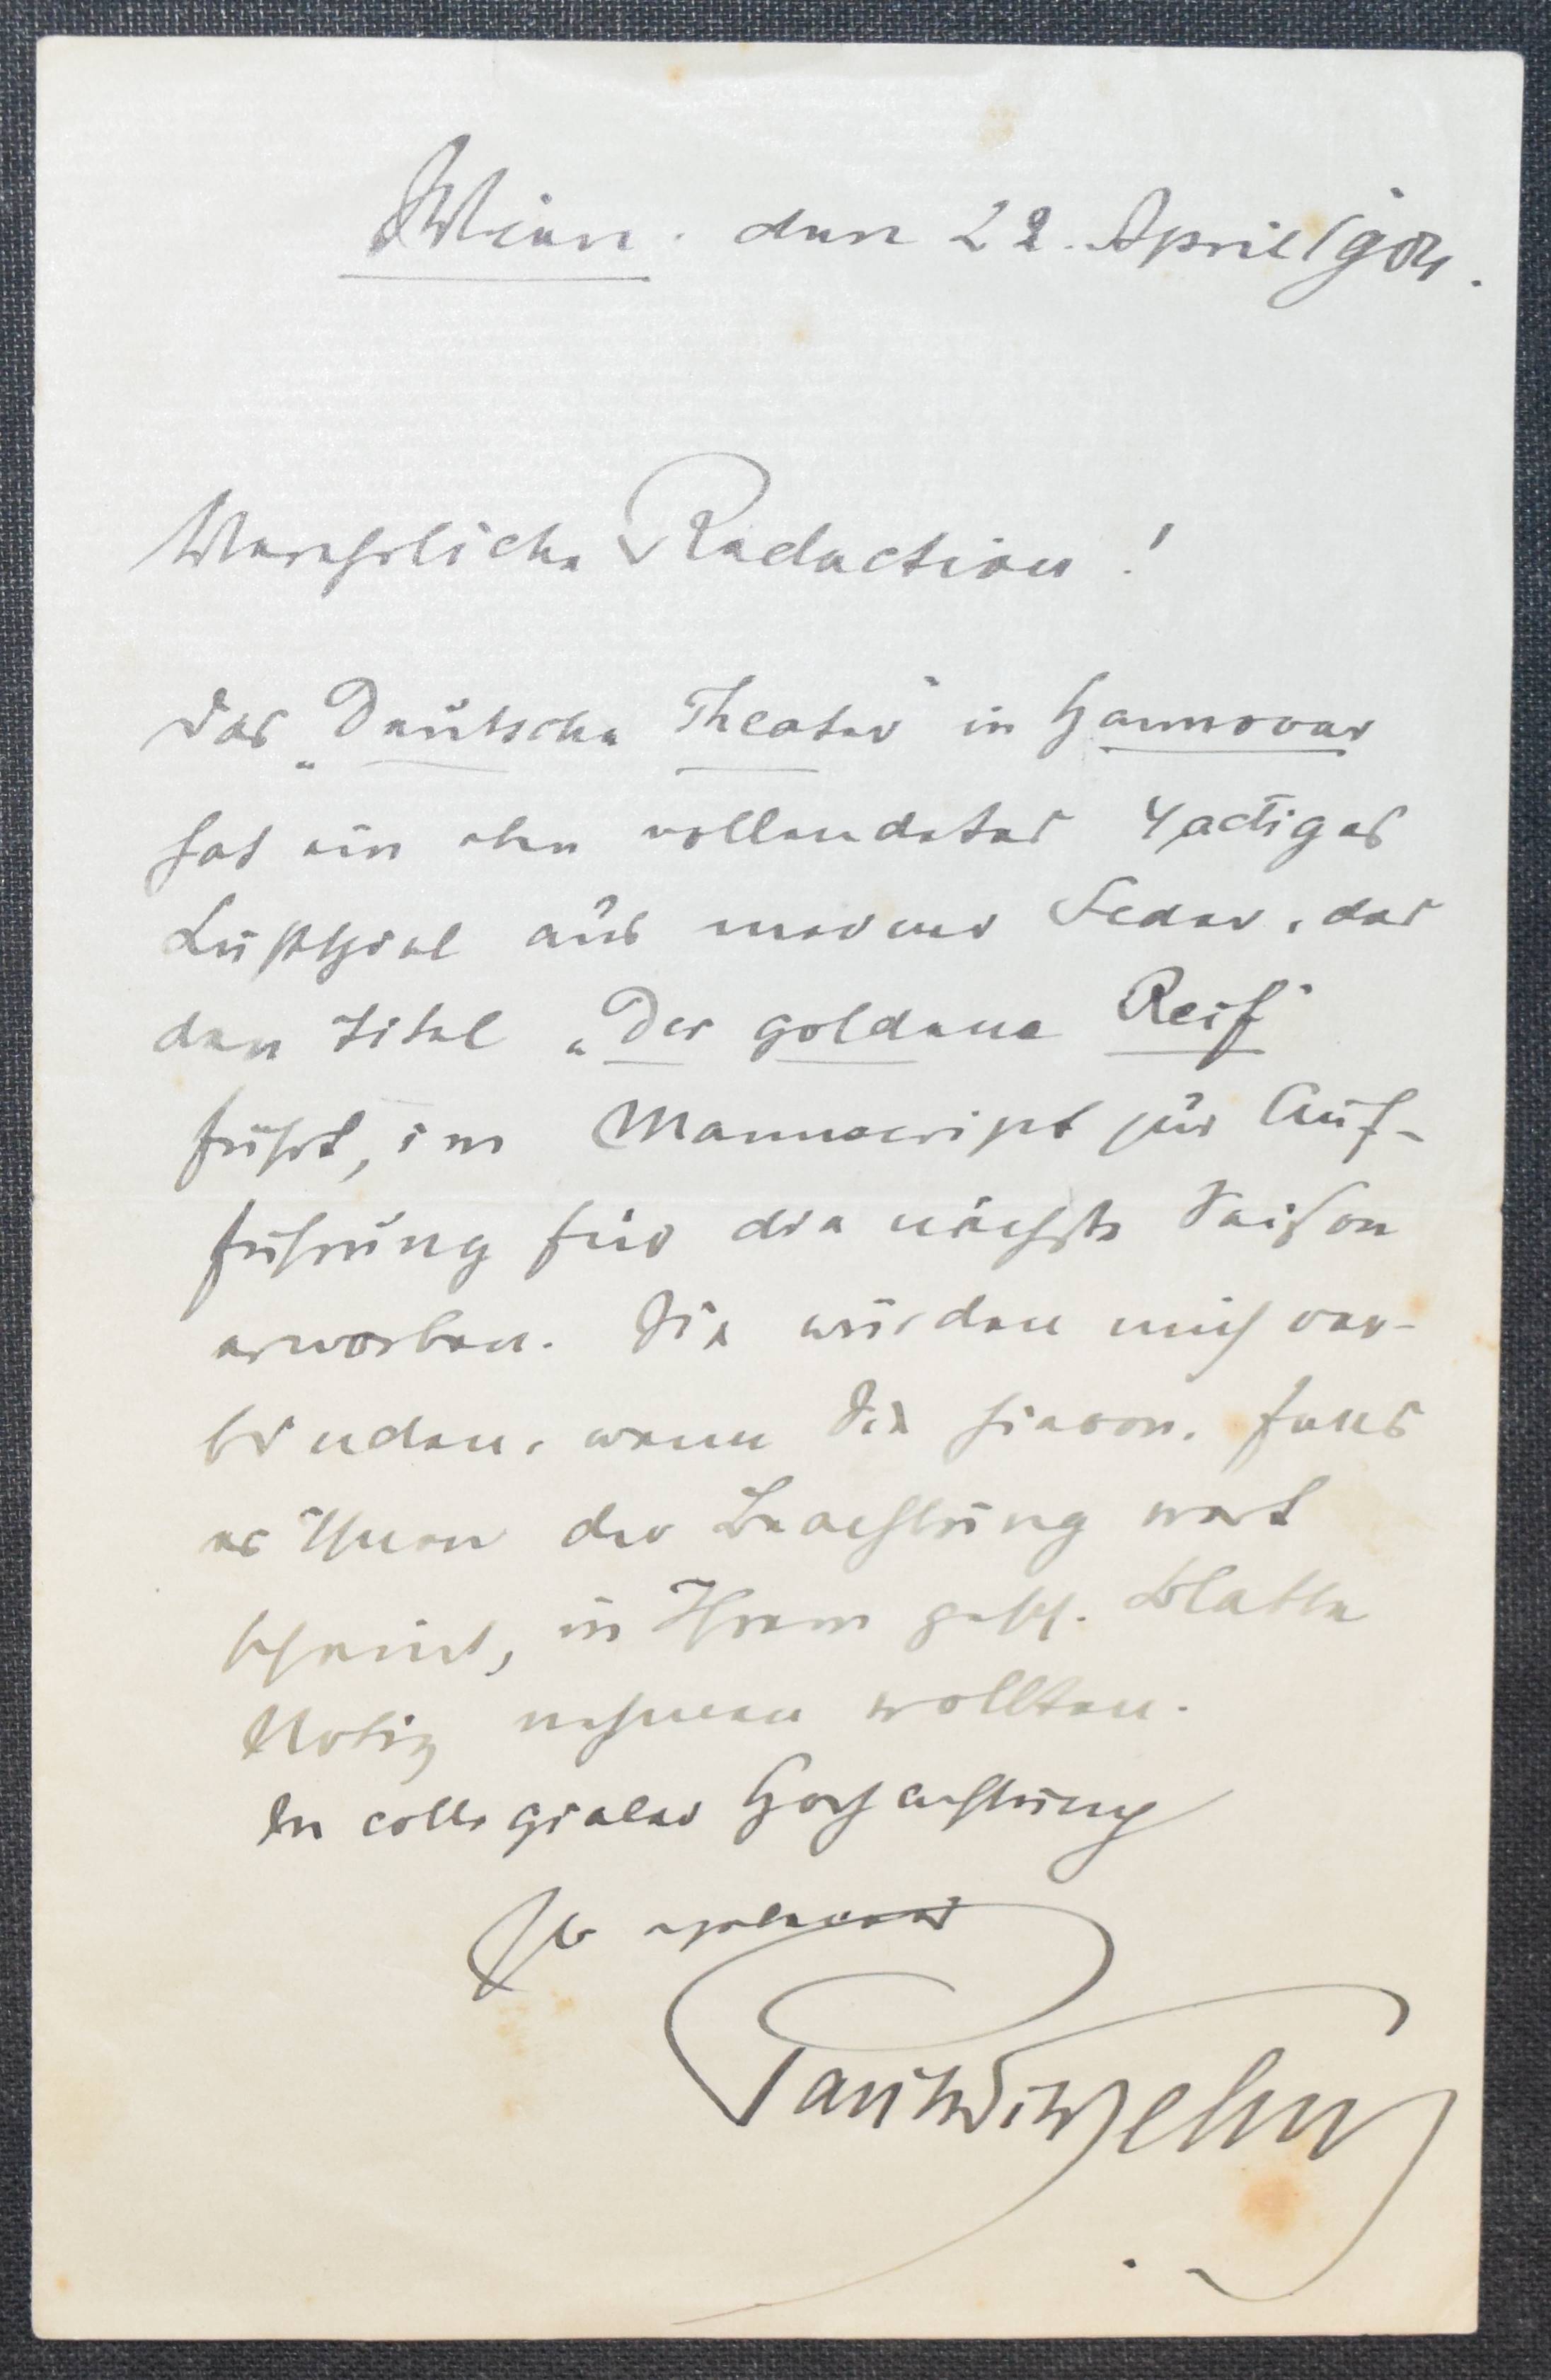 Wien. den 22. April 904.
Verehrliche Redaction!
Das „Deutsche Theater“ in Hannover
hat ein eben vollendetes 4actiges
Lustspiel aus meiner Feder, das
den Titel „Der goldene Reif“
führt, im Manuscript zur Auf-
führung für die nächste Saison
erworben. Sie würden mich ver-
binden, wenn Sie hievon, falls
es Ihnen der Beachtung wert
scheint, in Ihrem gesch. Blatte
Notiz nehmen wollten.
In collegialer Hochachtung
Ihr ergebener
Paul Wilhelm